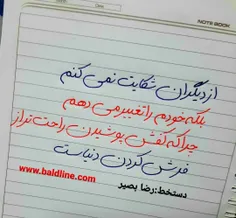 NOTE BOOK
از دیگران شکایت نمی کنم
بلکه خودم را تغییر می دهم
چرا که کفش پوشیدن راحت تر از
فرش کردن دنیاست
www.baldline.com
دستخط: رضا بصیر